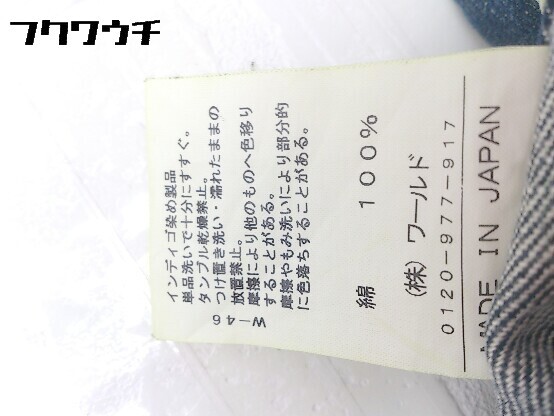 フクワウチ
インディゴ染め製品
単品洗いで十分にすすぐ。
タンブル乾燥禁止。
つけ置き洗い・濡れたままの
放置禁止。
摩擦により他のものへ色移り
することがある。
摩擦やもみ洗いにより部分的
に色落ちすることがある。
W-46
綿 100%
(株) ワールド
0120-977-917
MADE IN JAPAN